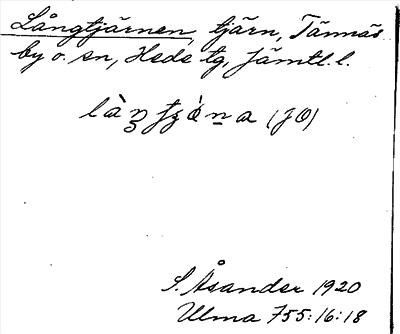 Långtjärnen, tjärn, Tännäs
by o. sn, Hede tg, Jämtl. l.
(JO)
S. Åsander 1920
Ulma 755:16:18